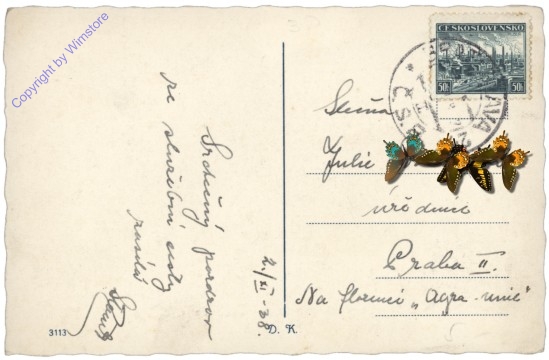 Copyright by Wimstore
ČESKOSLOVENSKO
50h 50h
Srdečný pozdrav
ze služební cesty
zasílá
2./XI-38.
Slečna
Julie
úřednice
Praha II.
Na Florenci „Agra-unie"
3113
D. K.